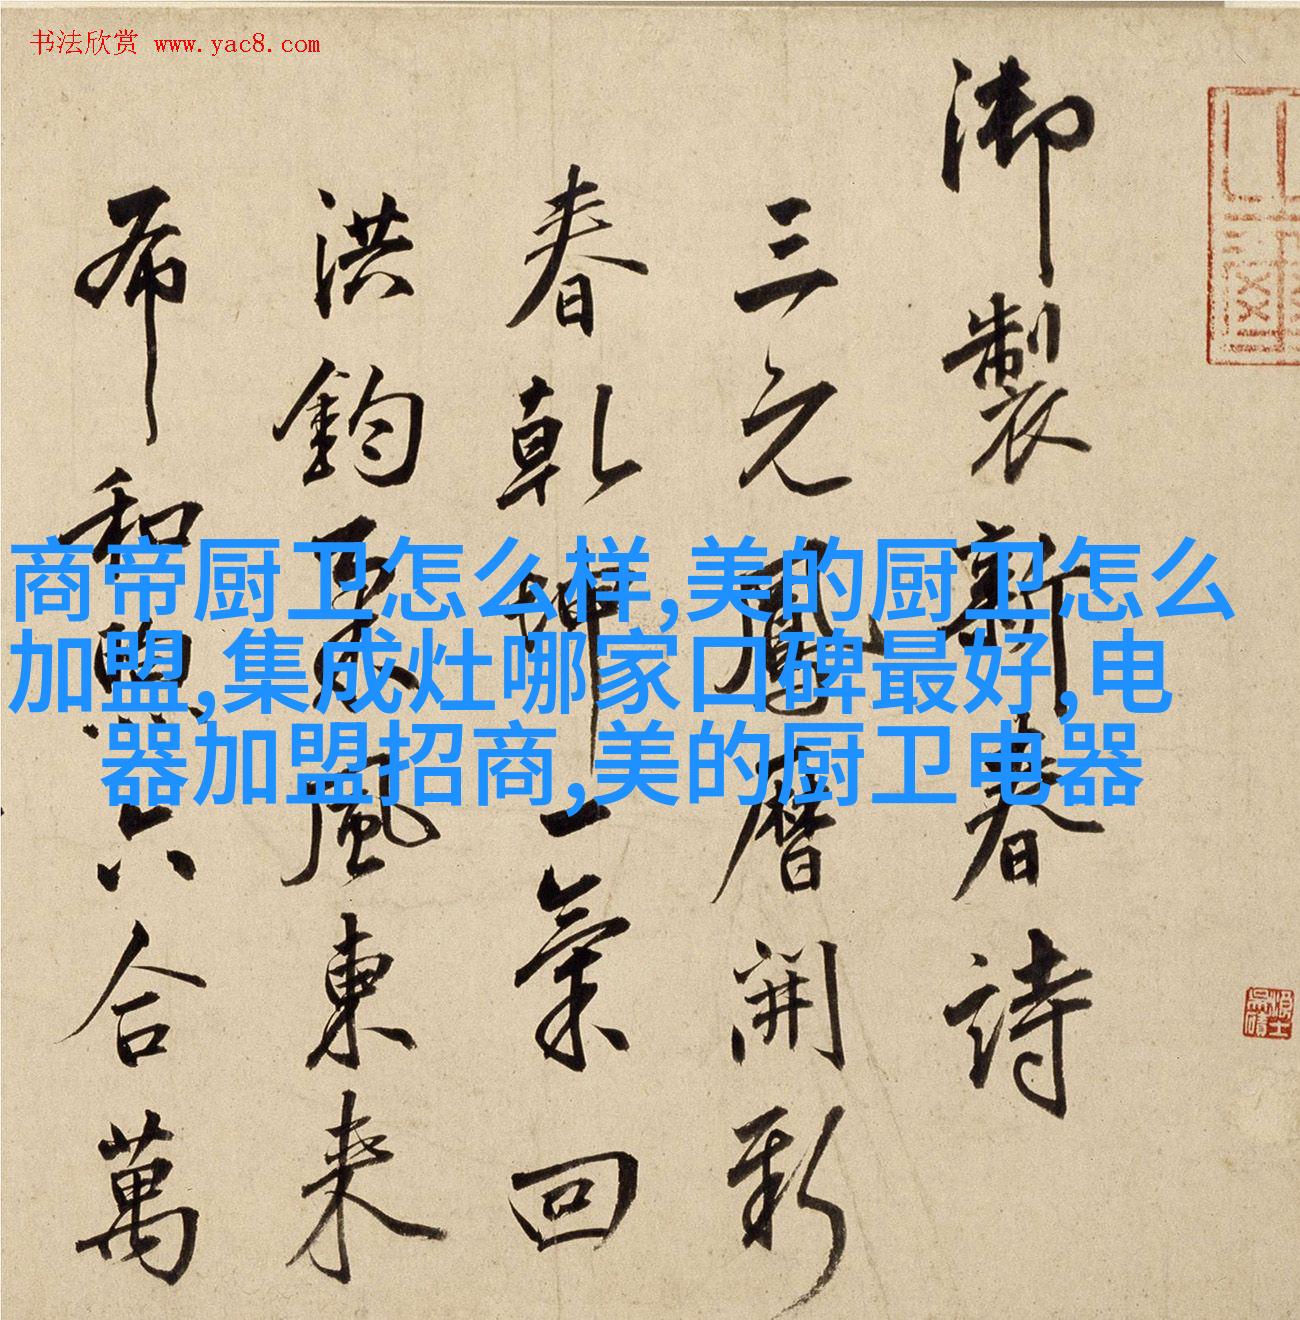 书法欣赏 www.yac8.com
御製新春詩
三元鳳曆開新
春乾坤一氣回
洪鈞風東来
布和六合萬
商帝厨卫怎么样,美的厨卫怎么
加盟,集成灶哪家口碑最好,电
器加盟招商,美的厨卫电器